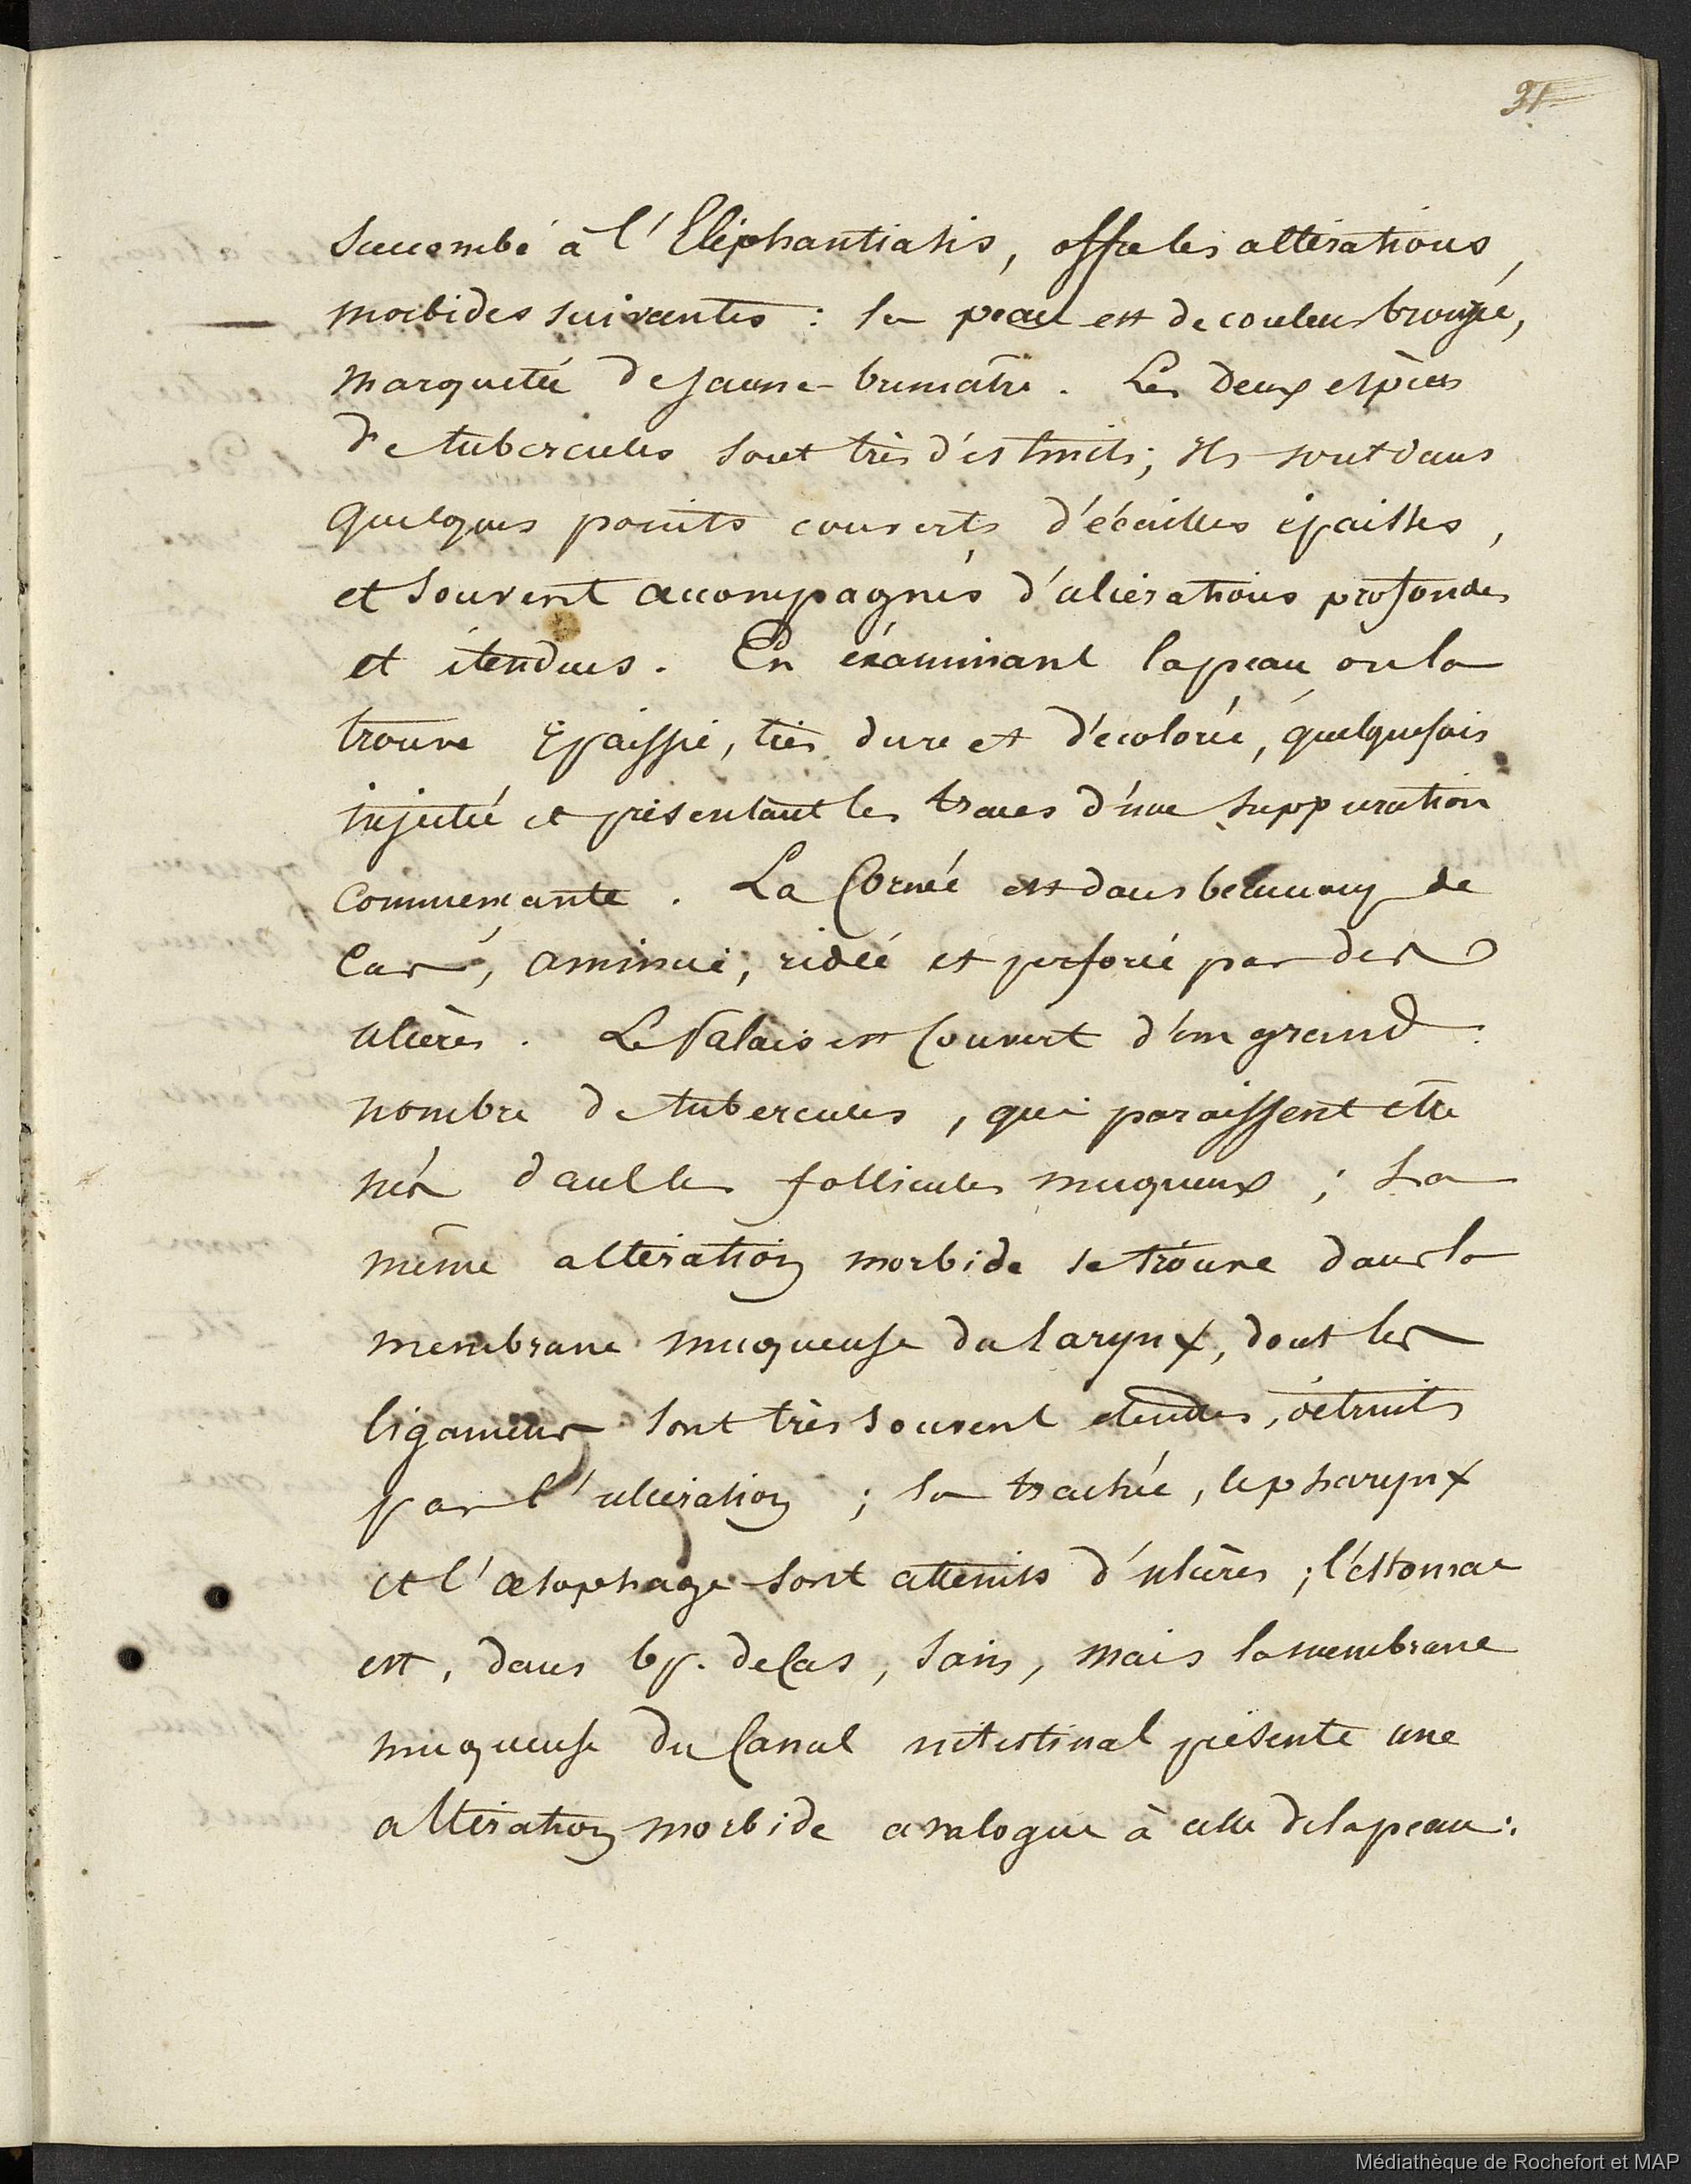 31
succombé à l'Eléphantiasis, offre les altérations
morbides suivantes : la peau est de couleur bronzée,
marquetée de jaune-brunatre. Les deux espèces
de tubercules sont très distincts; ils sont dans
quelques points couverts d'écailles épaisses,
et souvent accompagnés d'ulcérations profondes
et étendues. En éxaminant la peau on la
trouve Epaissie, très dure et décolorée, quelquefois
injectée et présentant les traces d'une suppuration
commençante. La Cornée est dans beaucoup de
Cas, amincie, ridée et perforée par des
ulcères. Le Palais est Couvert d'un grand
nombre de tubercules, qui paraissent etre
nés dans les follicules muqueux ; La
même altération morbide se trouve dans la
membrane muqueuse du larynx, dont les
ligamens sont très souvent détruits
par l'ulcération ; la trachée, le pharynx
et l'œsophage sont atteints d'ulcères ; l'éstomac
est, dans bp. de Cas, sain, mais la membrane
muqueuse du Canal intestinal présente une
altération morbide analogue à celle de la peau :
Médiathèque de Rochefort et MAP